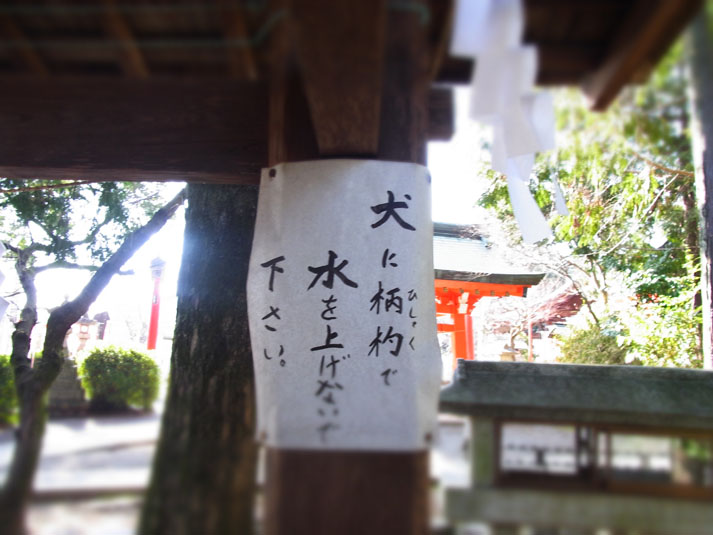 犬に柄杓で
ひしゃく
水を上げないで
下さい。